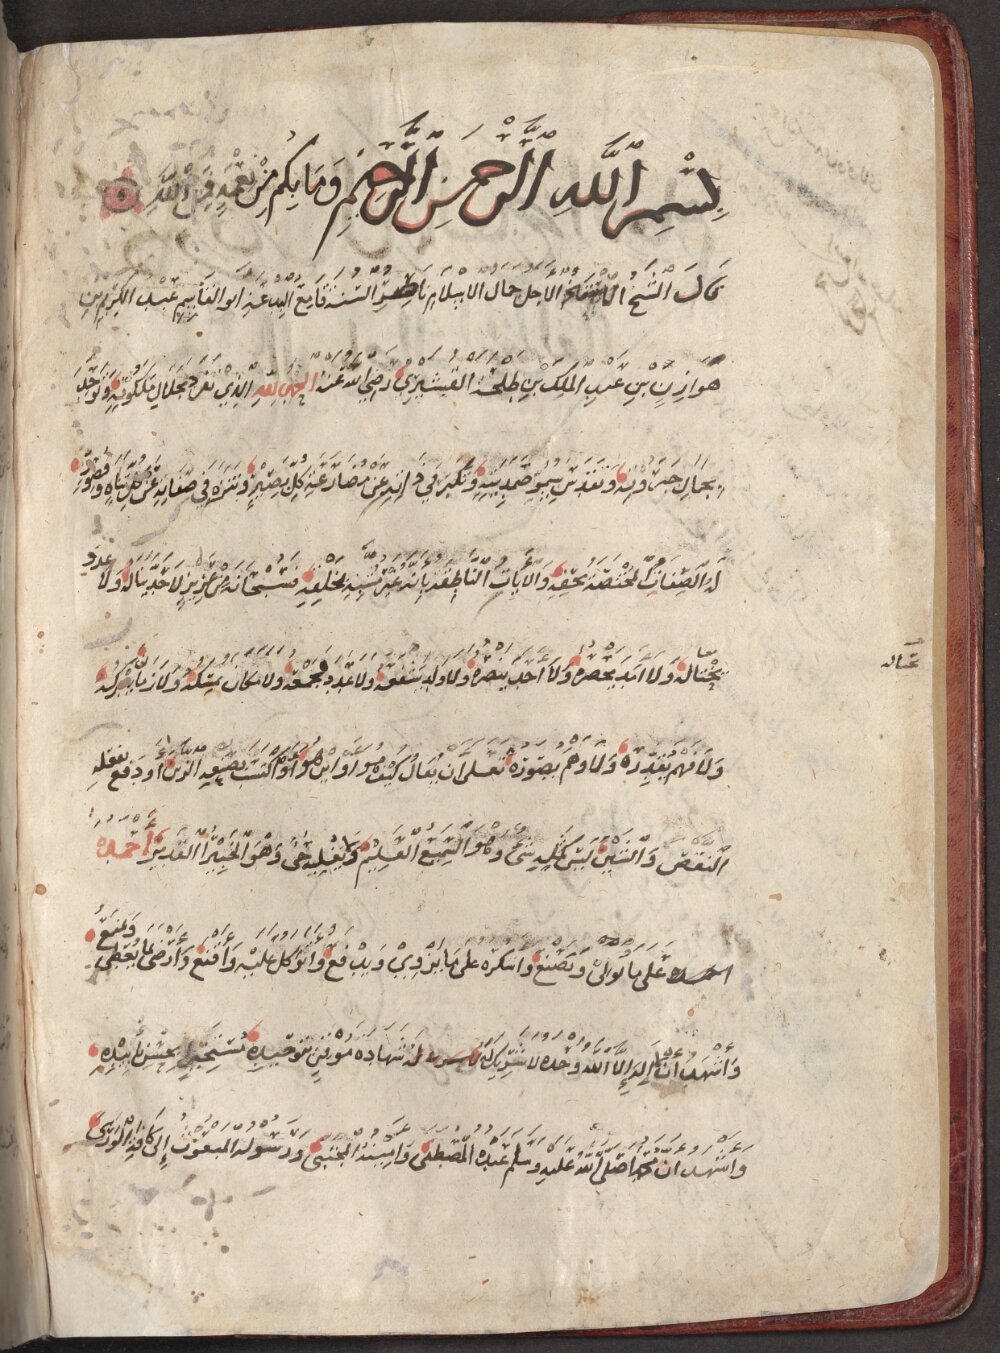 بِسْمِ اللَّهِ الرَّحْمَنِ الرَّحِيمِ وَمَا بِكُمْ مِنْ نِعْمَةٍ فَمِنَ اللَّهِ
قَالَ الشَّيْخُ الأجل جمال الإسلام ناصر السنة قامع البدعة ابو القاسم عبد الكريم بن
هَوَازِنِ بْنِ عَبْدِ المَلِكِ بْنِ طَلْحَةَ القُشَيْرِيُّ رَضِيَ اللَّهُ عَنْهُ الحمد لله الَّذِي تفرد بجلال ملكوته وتوحد
بجمال جبروته وتقدس بسمو صمديته وتكبر في ذاته عن مضارعة كل نظير وتنزه في صفاته عن كل تناه وقصور
له الصفات المختصة بحقه والآيات الناطقة بانه غير مشبه بخلقه فسبحانه من عزيز لا حد يناله ولا عدد
يحتاله ولا امد يحصره ولا احد ينصره ولا ولد يشفعه ولا عدد يجمعه ولا مكان يمسكه ولا زمان يدركه
تحتاله
ولا فهم يقدره ولا وهم يصوره تعالى ان يقال كيف هو او اين هو او اكتسب بصنعه الزين او دفع بفعله
النقص والشين ليس كمثله شئ وهو السميع العليم ولا يغلبه حي وهو الخبير القدير أحمده
على ما يولي ويصنع واشكره على ما يزوي ويدفع واتوكل عليه واقنع وارضى بما يعطي ويمنع
واشهد أن لا إله إلا الله وحده لا شريك له شهادة موقن بتوحيده مستجير بحسن تأييده
واشهد ان محمدا صلى الله عليه وسلم عبده المصطفى وامينه المجتبى ورسوله المبعوث إلى كافة الورى